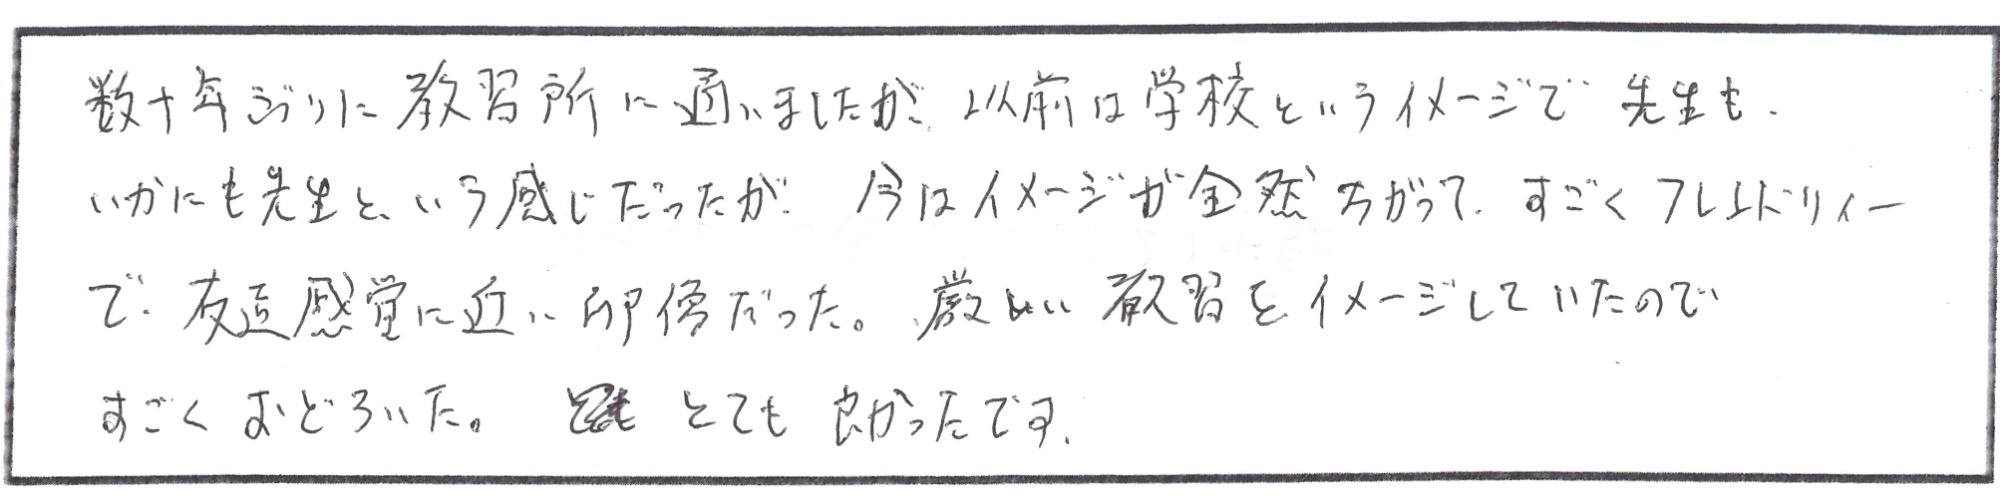 数十年ぶりに教習所に通いましたが、以前は学校というイメージで先生も、
いかにも先生と、いう感じだったが、今はイメージが全然ちがって、すごくフレンドリィー
で、友達感覚に近い印象だった。厳しい教習をイメージしていたので
すごくおどろいた。とても良かったです。